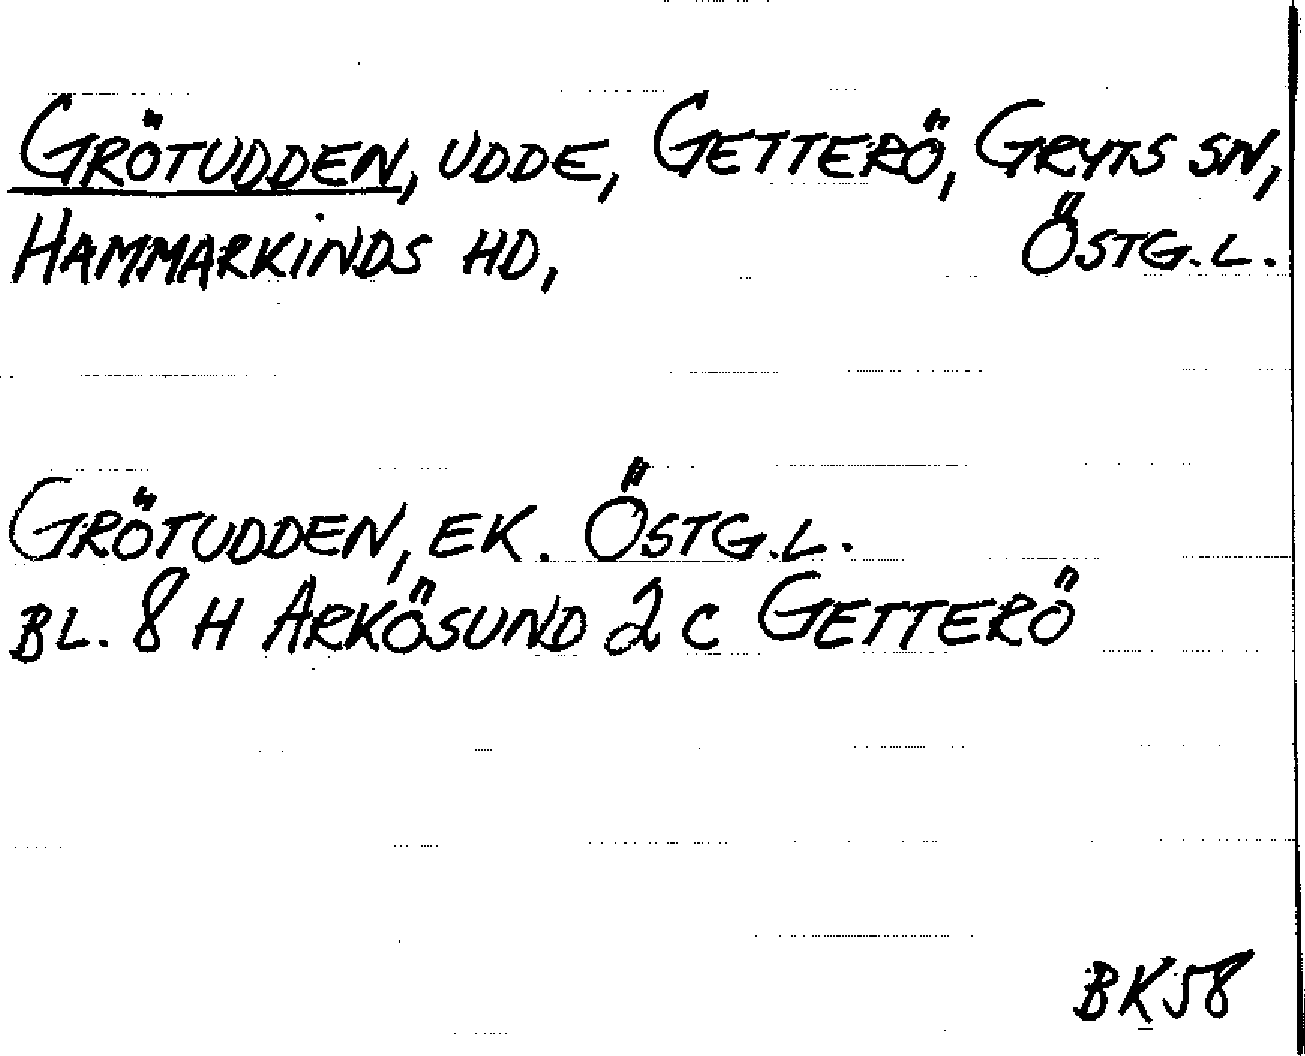 GRÖTUDDEN, UDDE, GETTERÖ, GRYTS SN,
HAMMARKINDS HD, ÖSTG.L.
GRÖTUDDEN, EK. ÖSTG.L.
BL. 8 H ARKÖSUND 2 C GETTERÖ
BK58